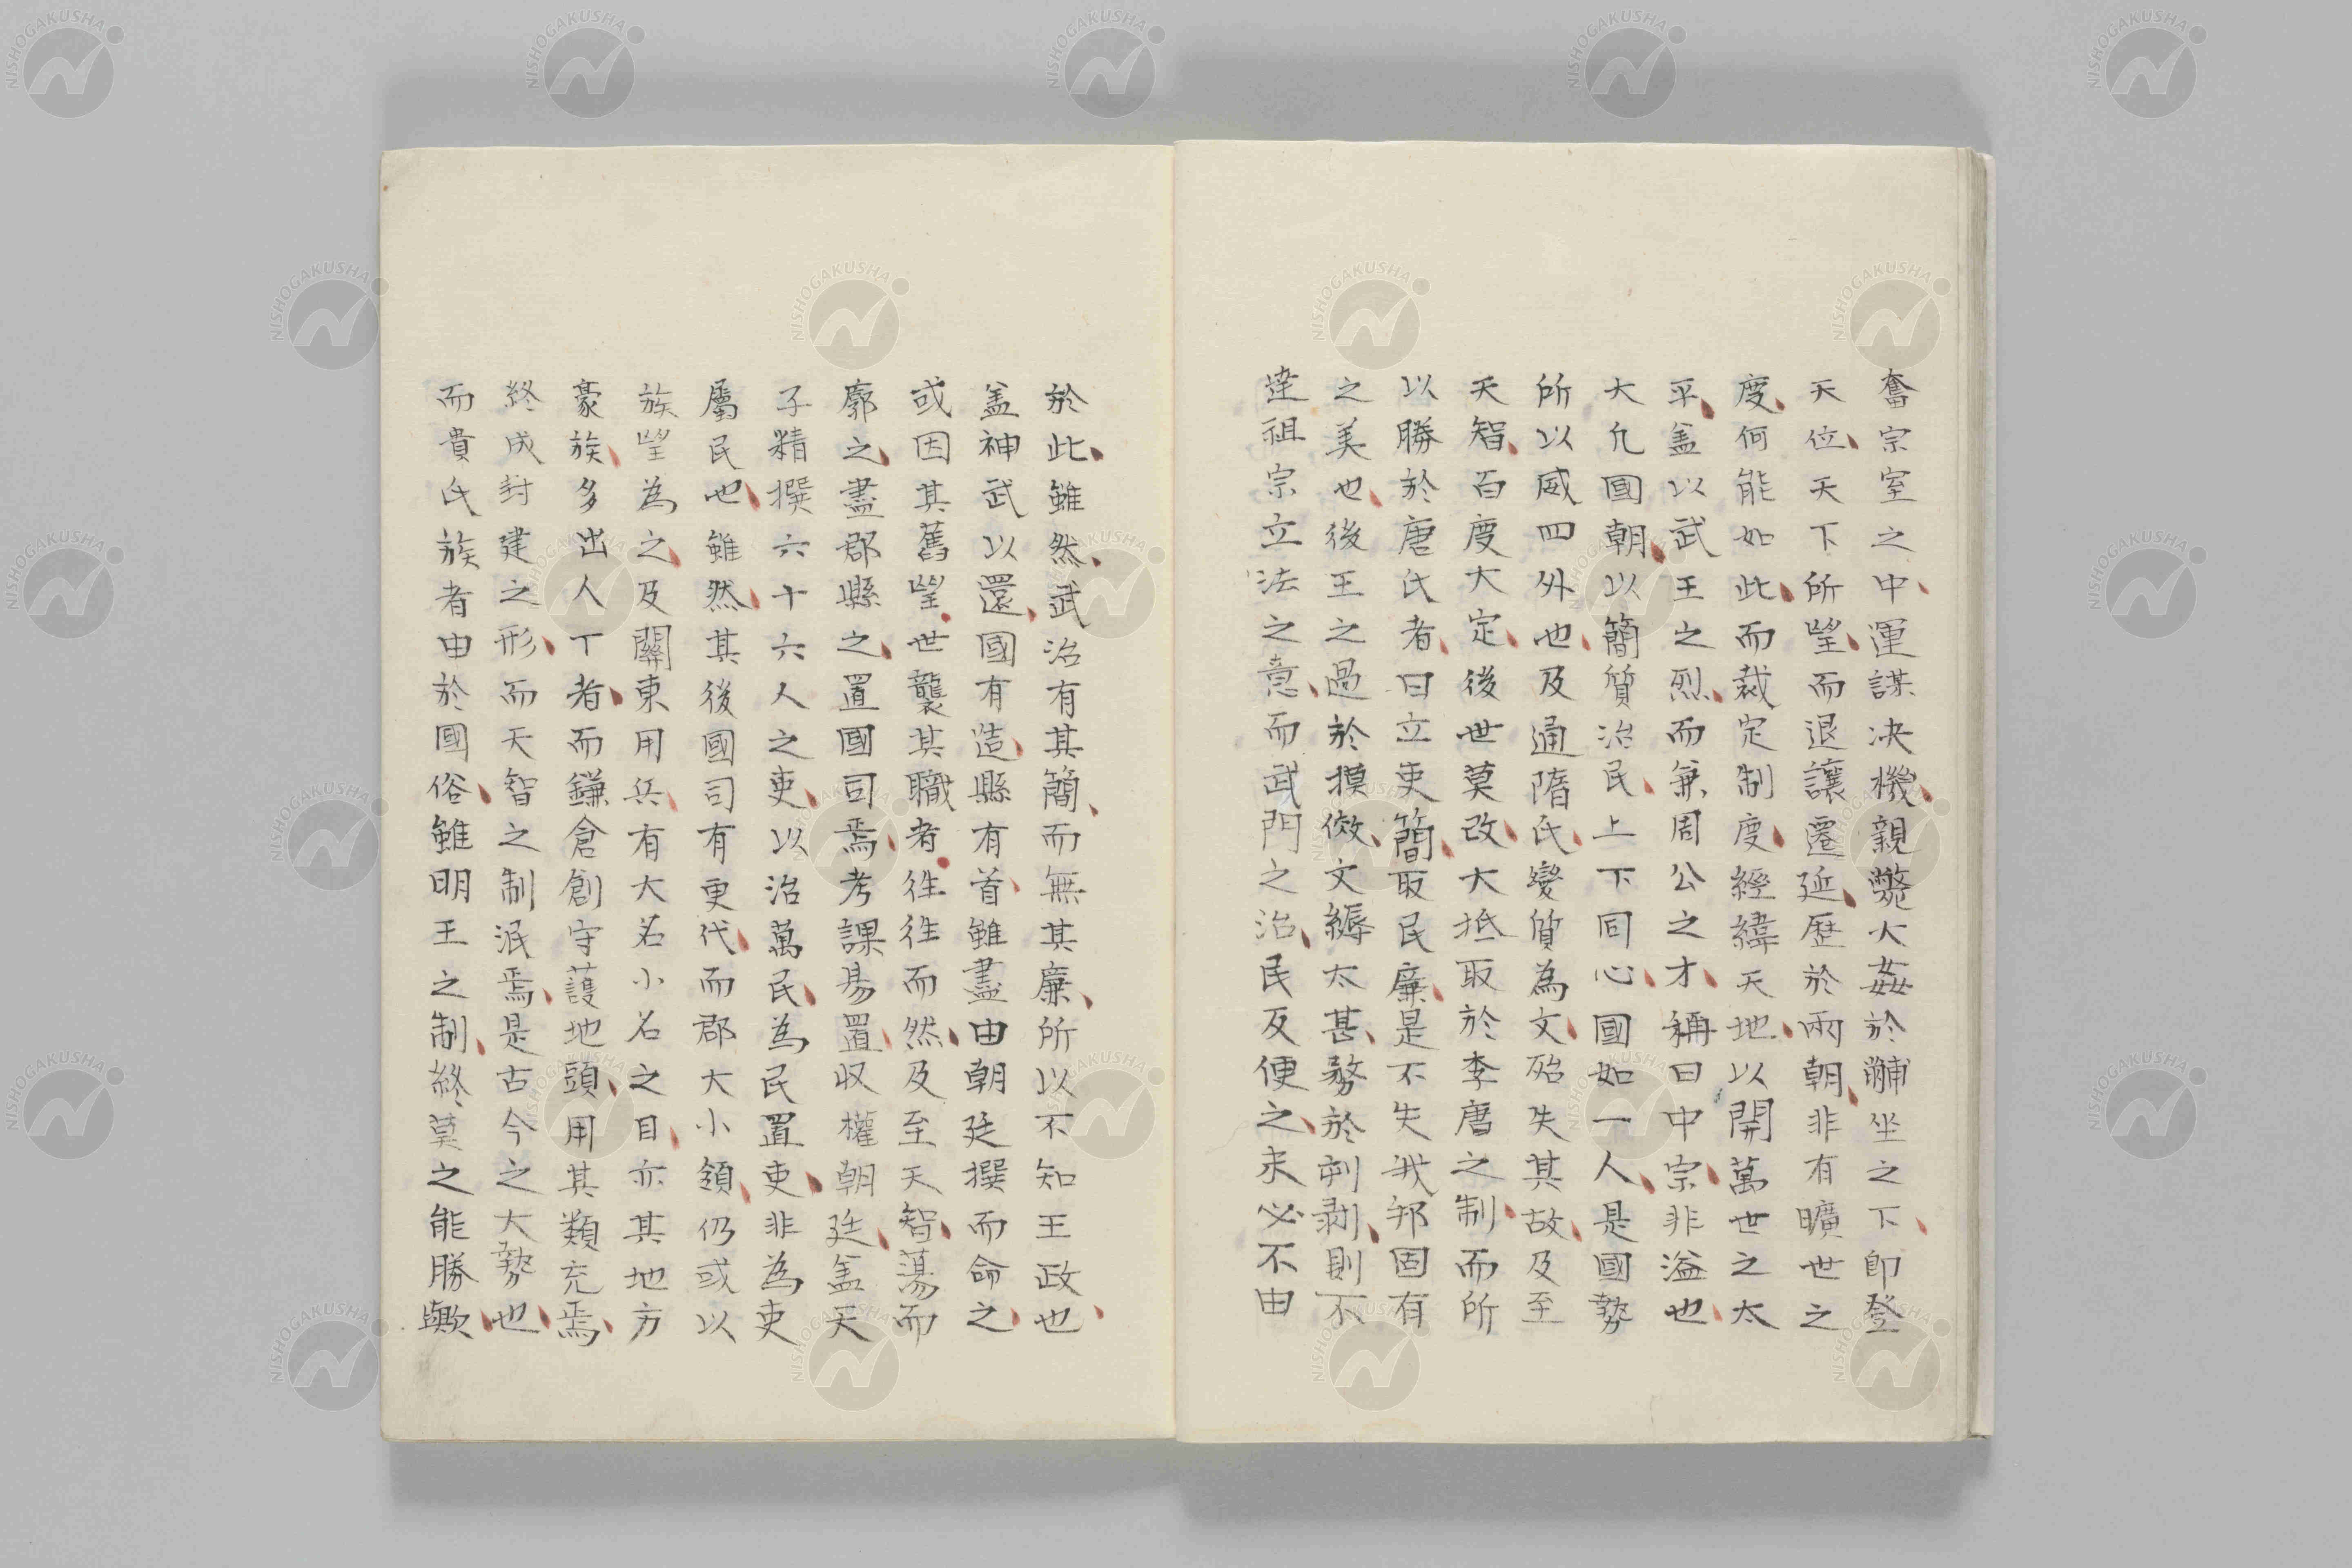 奮宗室之中運謀决機親斃大姦於黼坐之下卽登
天位天下所望而退讓遷延歷於兩朝非有曠世之
度何能如此而裁定制度經緯天地以開萬世之太
平盖以武王之烈而兼周公之才稱曰中宗非溢也
大凢國朝以簡質治民上下同心國如一人是國勢
所以威四外也及通隋氏變質為文殆失其故及至
天智百度大定後世莫改大抵取於李唐之制而所
以勝於唐氏者曰立吏簡取民廉是不失我邦固有
之美也後王之過於摸倣文縟太甚務於剥剥則不
達祖宗立法之意而武門之治民反便之未必不由
於此雖然武治有其簡而無其廉所以不知王政也
盖神武以還國有造縣有首雖盡由朝廷撰而命之
或因其舊望世襲其職者徃徃而然及至天智蕩而
廓之盡郡縣之置國司焉考課昜置収權朝廷盖天
子精撰六十六人之吏以治萬民為民置吏非為吏
屬民也雖然其後國司有更代而郡大小領仍或以
族望為之及關東用兵有大名小名之目亦其地方
豪族多出人丁者而鎌倉創守護地頭用其類充焉
終成封建之形而天智之制泯焉是古今之大勢也
而貴氏族者由於國俗雖明王之制終莫之能勝歟
NISHOGAKUSHA